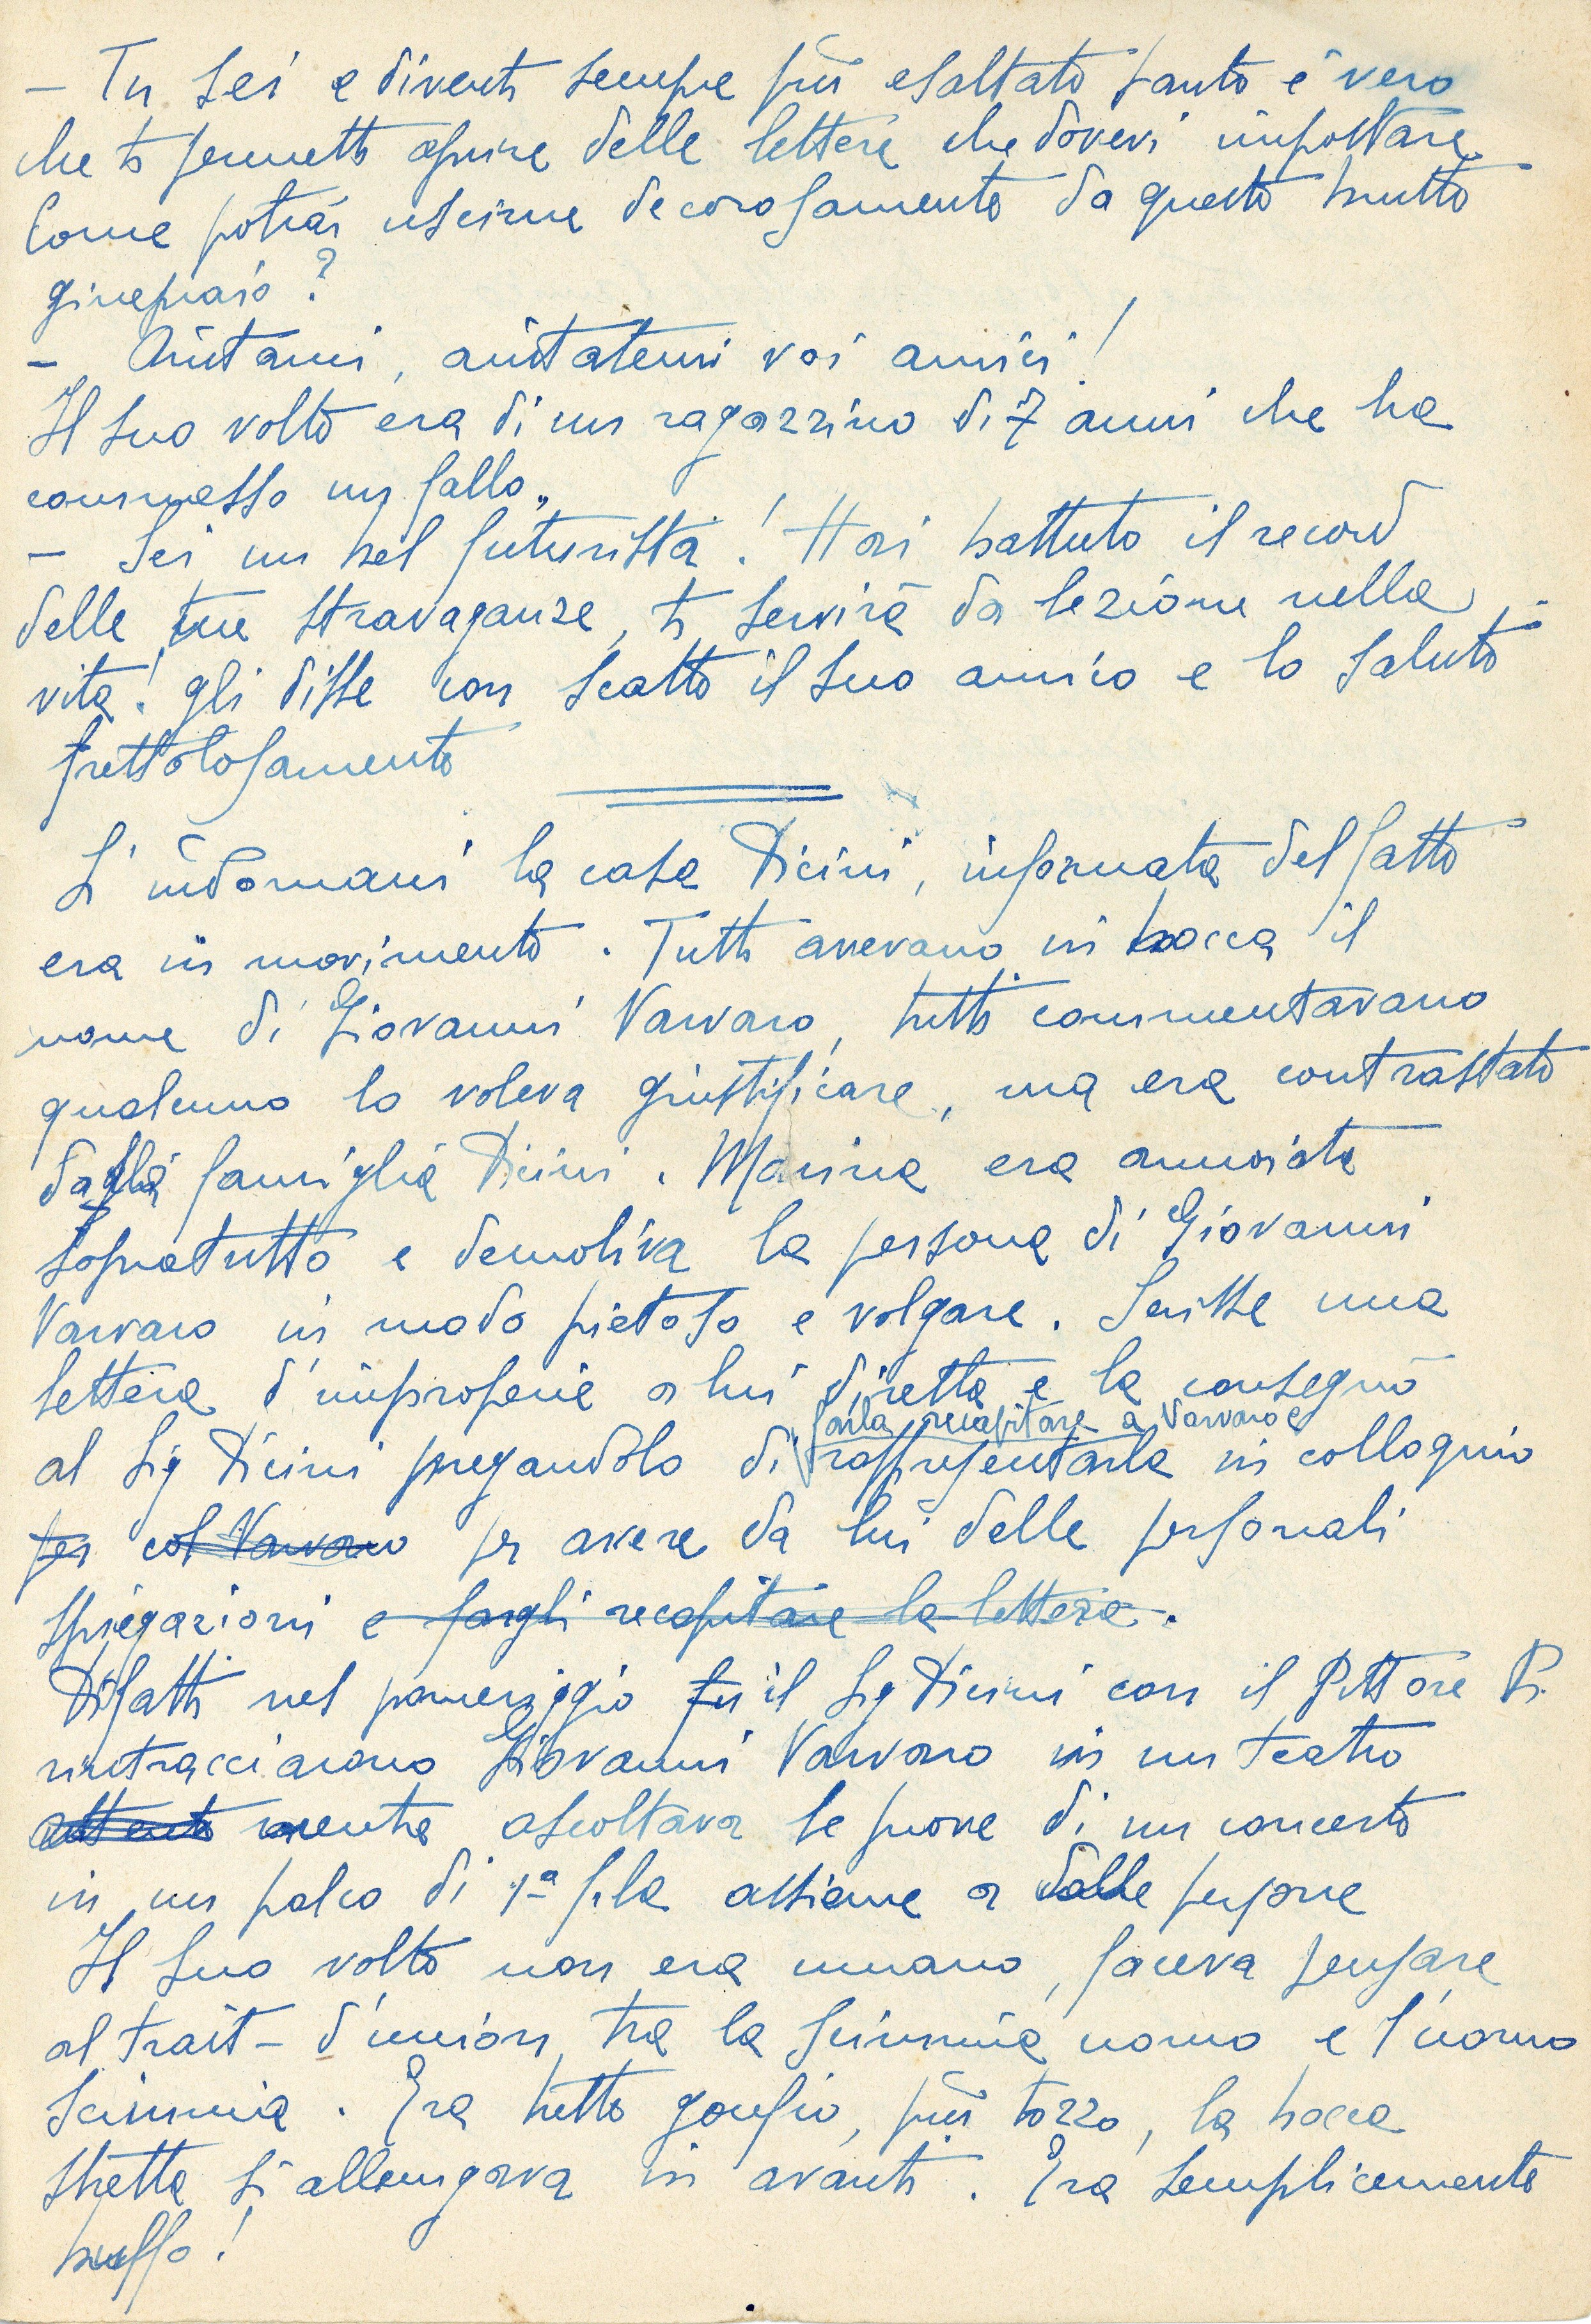 – Tu sei e diventi sempre più esaltato tanto è vero
che ti permetti aprire delle lettere che dovevi impostare.
Come potrai uscirne decorosamente da questo brutto
ginepraio?
– Aiutami, aiutatemi voi amici!
Il suo volto era di un ragazzino di 7 anni che ha
commesso un fallo.
– Sei un bel futurista! Hai battuto il record
delle tue stravaganze, ti servirà da lezione nella
vita! gli disse con scatto il suo amico e lo salutò
frettolosamente
L'indomani la casa Dicini, informata del fatto
era in movimento. Tutti avevano in bocca il
nome di Giovanni Varvaro, tutti commentavano
qualcuno lo voleva giustificare, ma era contrastato
dalla famiglia Dicini. Marina era annoiata
sopratutto e demoliva la persona di Giovanni
Varvaro in modo pietoso e volgare. Scrisse una
lettera d'improperie a lui diretta e la consegnò
farla recapitare a Varvaro e
al Sig Dicini pregandolo di rappresentarla in colloquio
per col Varvaro per avere da lui delle personali
spiegazioni e fargli recapitare la lettera.
Difatti nel pomeriggio fu il Sig Dicini con il Pittore Pi.
rintracciarono Giovanni Varvaro in un teatro
attento mentre ascoltava le prove di un concerto
in un palco di 1ª fila assieme a delle persone
Il suo volto non era umano, faceva pensare
al trait-d'union tra la scimmia uomo e l'uomo
scimmia. Era tutto gonfio, più tozzo, la bocca
stretta si allungava in avanti. Era semplicemente
buffo!